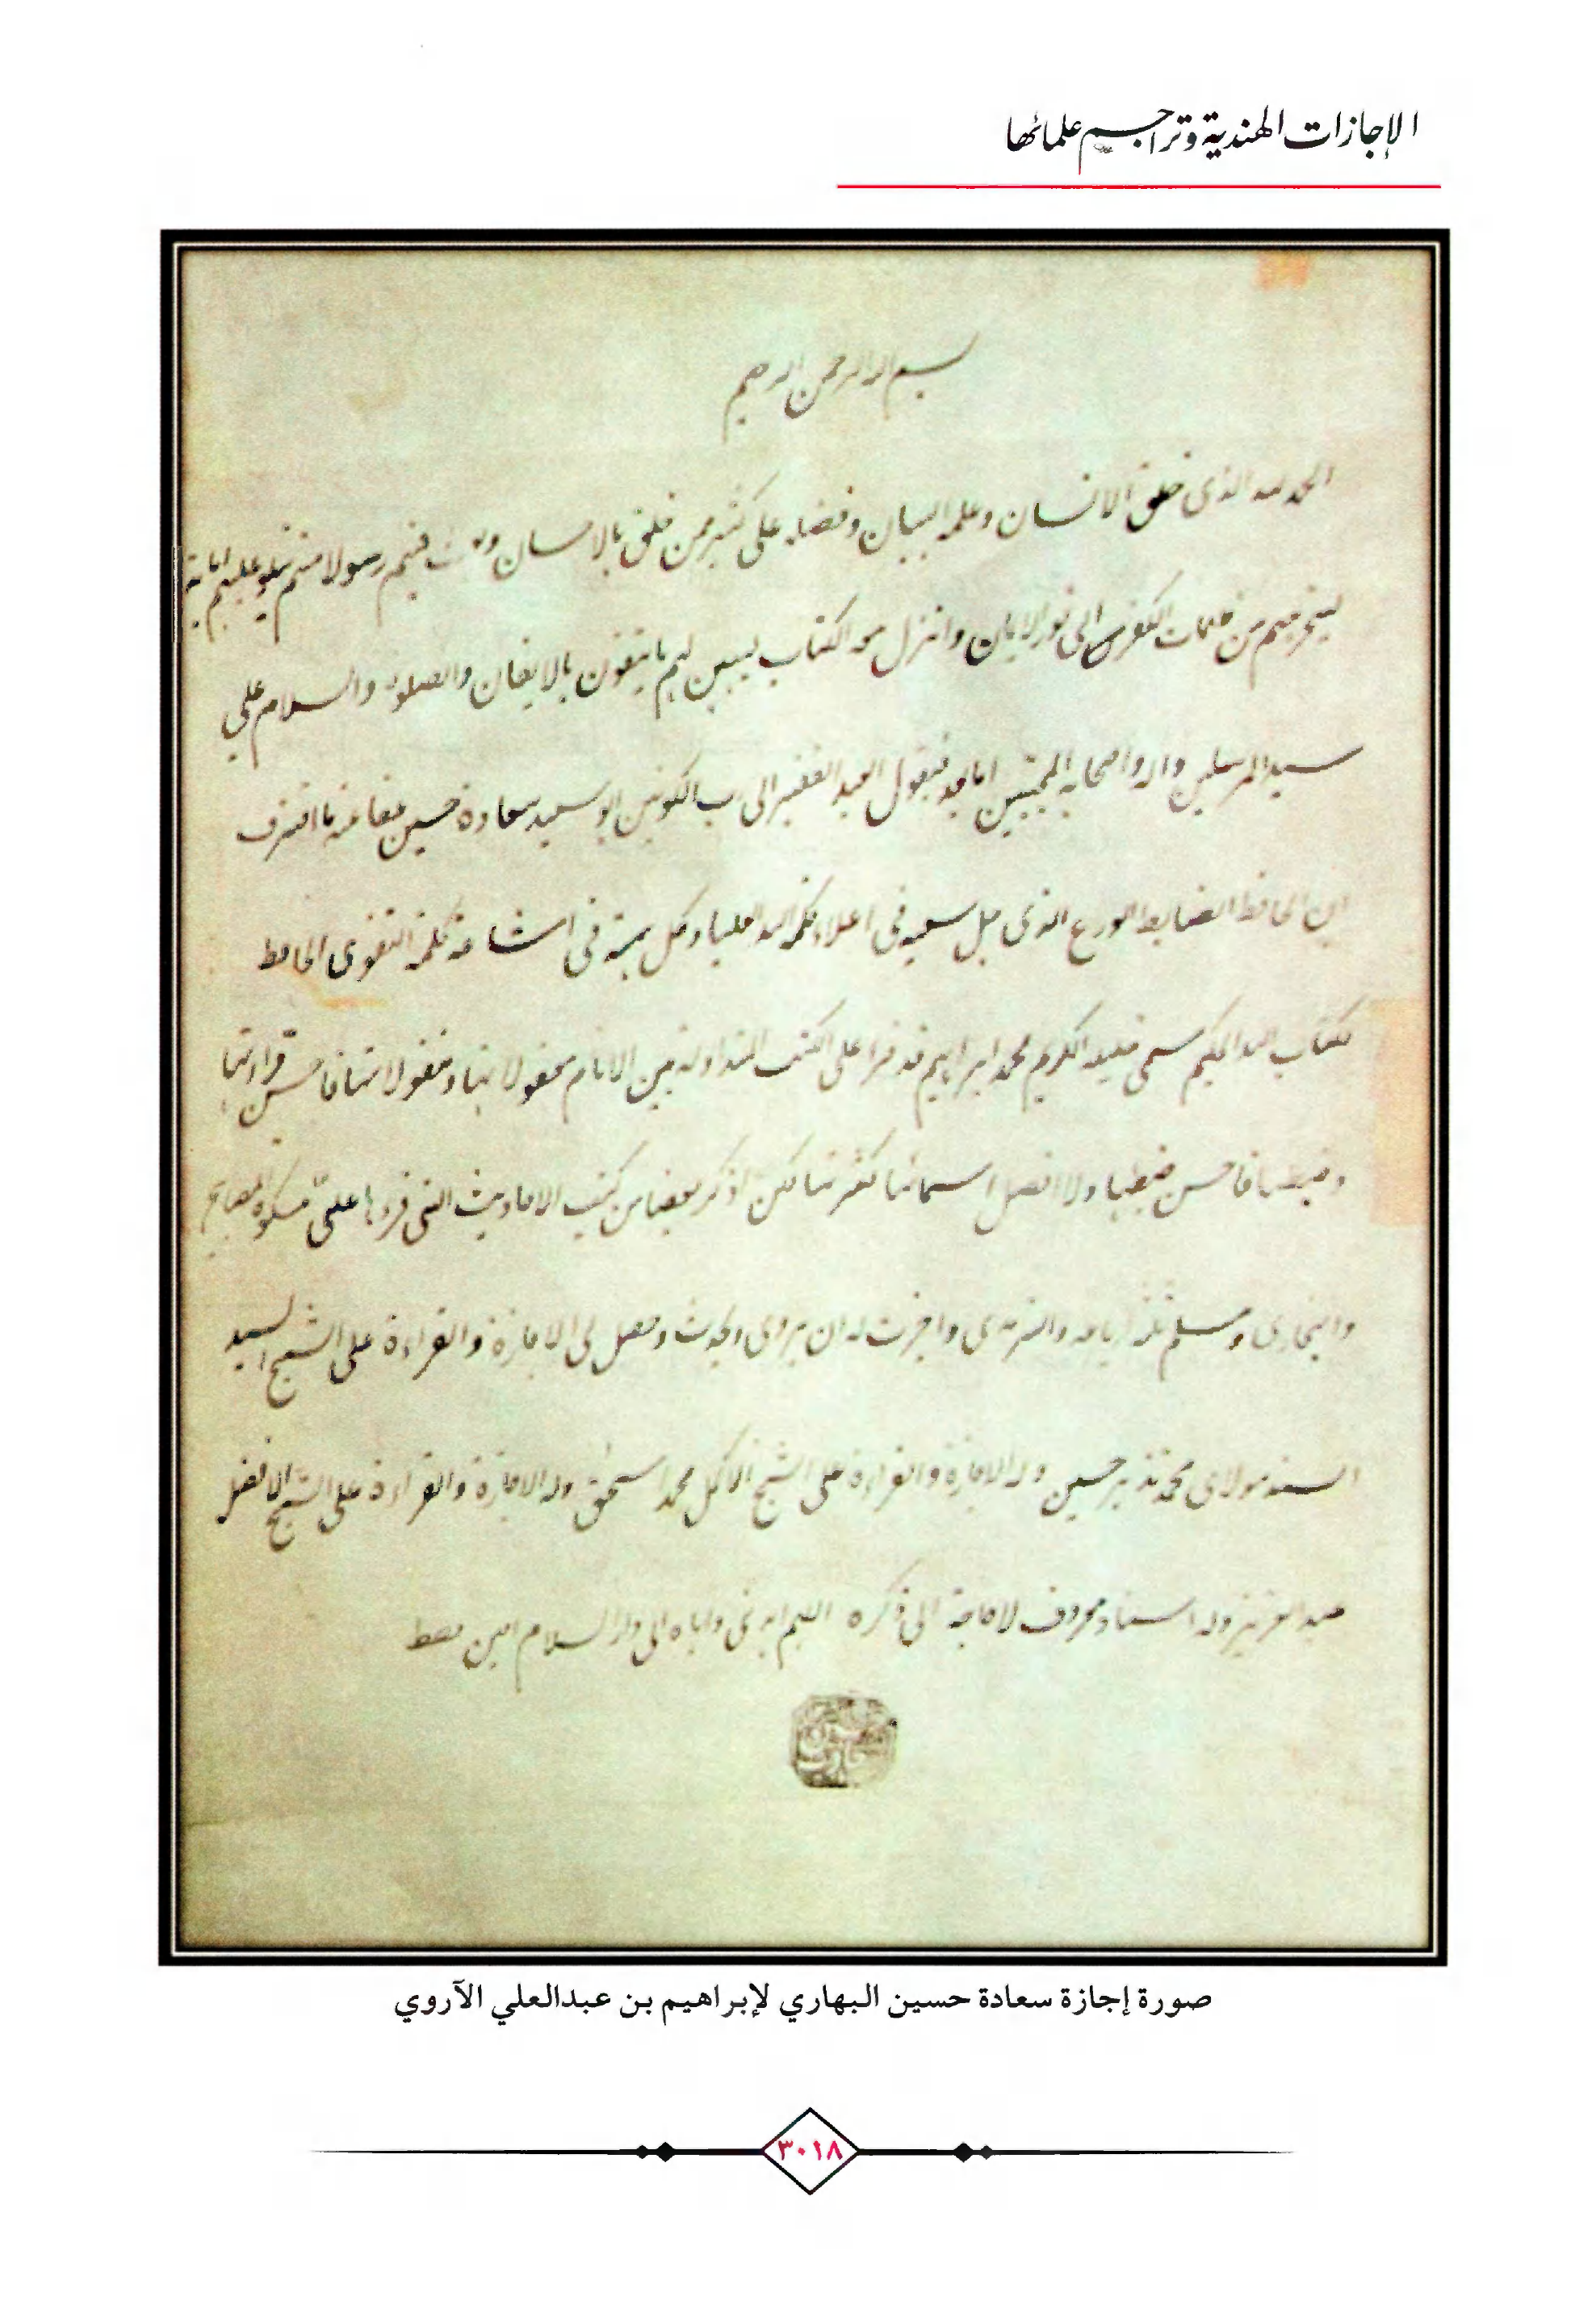 الإجازات الهندية وتراجم علمائها
بسم الله الرحمن الرحيم
الحمد لله الذى خلق الانسان وعلمه البيان وفضله على كثير ممن خلق بالاحسان وبعث فيهم رسولا منهم يتلو عليهم اياته
ليخرجهم من ظلمات الكفر الى نور الايمان وانزل معه الكتاب ليبين لهم ما يتقون بالايقان والصلوة والسلام على
سيد المرسلين واله واصحابه المجتبين اما بعد فيقول العبد الفقير الى رب الكونين ابو سعيد سعادة حسين عفا عنه ما اقترف
ان الحافظ الضابط الورع الذى جل سعيه فى اعلاء كلمة الله العليا وكل همته فى اشاعة كلمة التقوى الحافظ
لكتاب الله الحكيم سمى خليله الكريم محمد ابراهيم قد قرا على الكتب المتداولة بين الانام معقولاتها ومنقولاتها فاحسن قراءتها
وضبطها فاحسن ضبطها ولا افصل اسمائها لكثرتها لكن اذكر بعضا من كتب الاحاديث التى قرءها على مشكوة المصابيح
والبخارى ومسلم وابن ماجه والترمذى واجزت له ان يروى ويحدث وحصل لى الاجازة والقراءة على الشيخ السيد
السند مولاى محمد نذير حسين وله الاجازة والقراءة على الشيخ الاكمل محمد اسحق وله الاجازة والقراءة على الشيخ الافضل
عبد العزيز وله اسناد معروف لا حاجة الى ذكره اللهم اهدنى واياه الى دار السلام امين فقط
صورة إجازة سعادة حسين البهاري لإبراهيم بن عبدالعلي الآروي
٣٠١٨